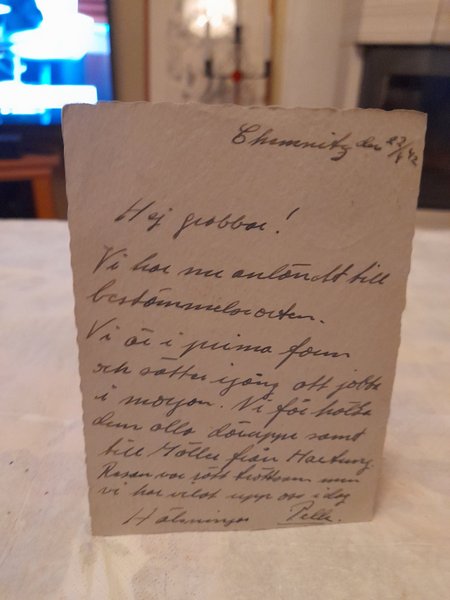 Chemnitz den 22/4 42
Hej grabbar!
Vi har nu anländt till
bestämmelseorten.
Vi är i prima form
och sätter igång att jobba
i morgon. Vi får hälsa
dem alla däruppe samt
till Möller från Hartung.
Resan var rätt tröttsam men
vi har vilat upp oss idag
Hälsningar Pelle.